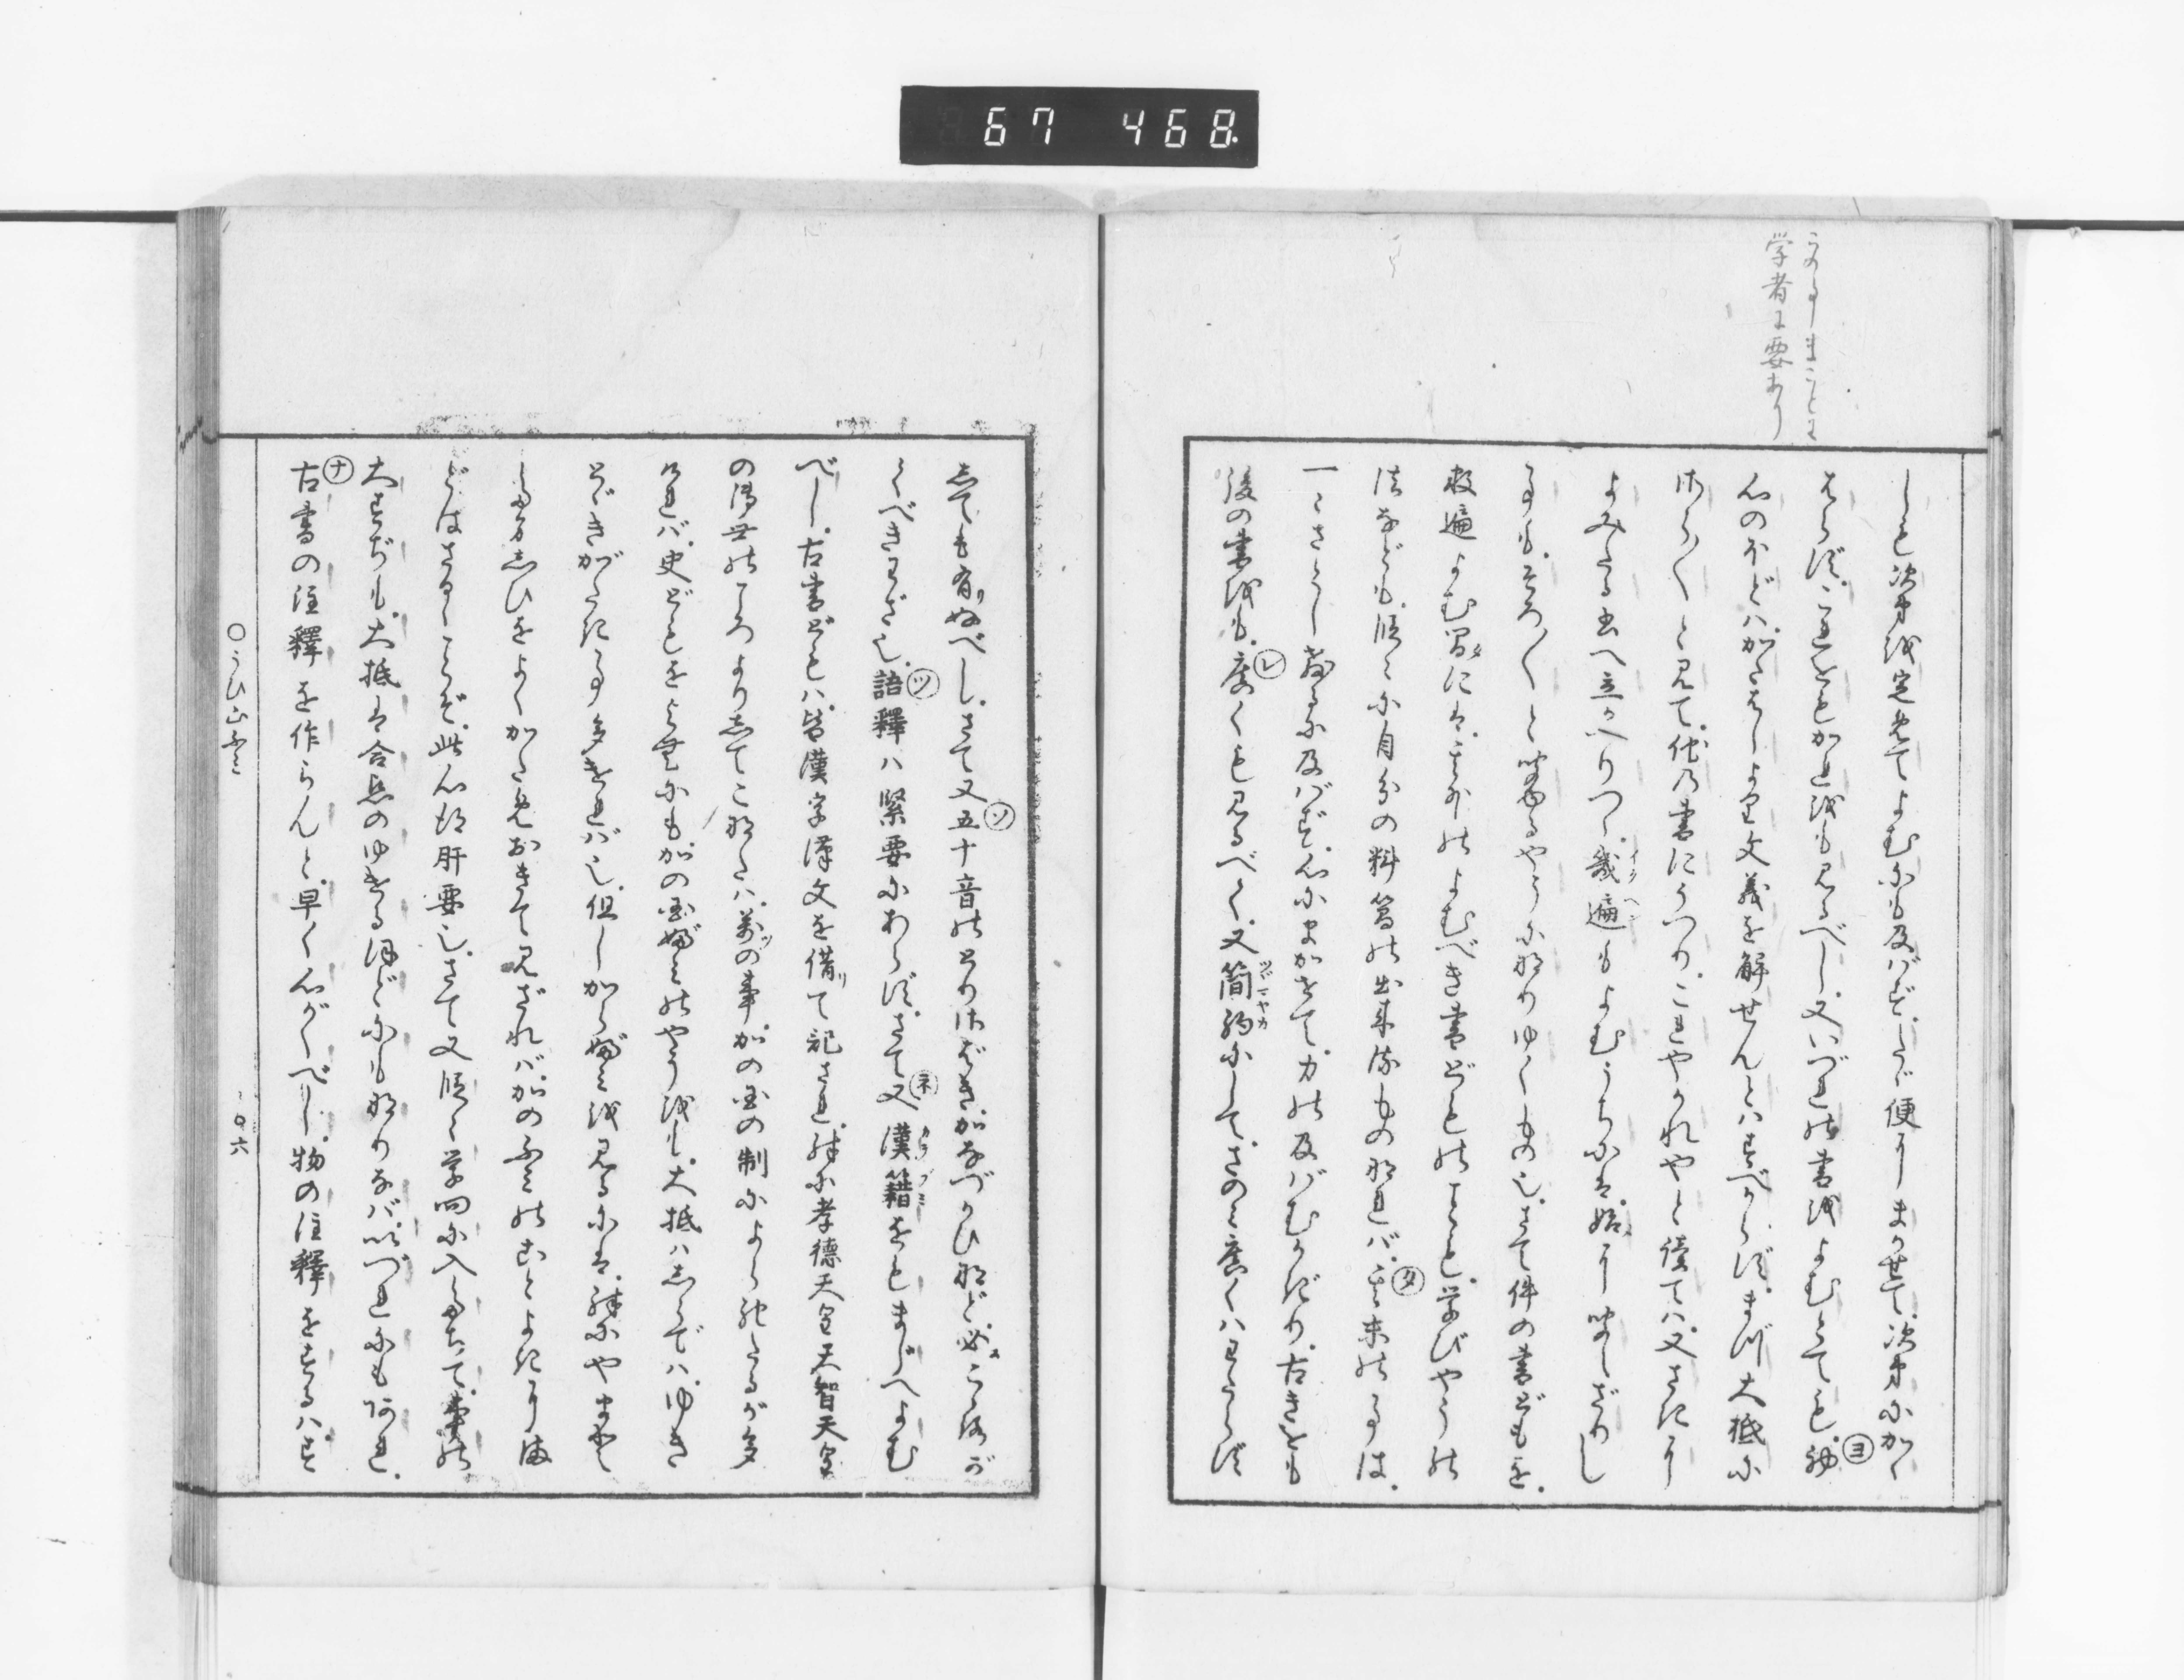 67 468.
この事まことに
学者に要あり
しも次第を定めてよむにも及ばず。たゞ便にまかせて。次第にかゝ
はらず。これをもかれをも見るべし。又いづれの書をよむとても。初
ヨ
心のほどハ。かたはしより文義を解せんとハすべからず。まづ大抵に
さら〱と見て。他の書にうつり。これやかれやと読てハ。又さきに
よみたる書へ立かへりつゝ。幾遍もよむうちには。始に聞えざりし
イク ヘン
事も。そろ〱と聞ゆるやうになりゆくもの也。さて件の書どもを。
数遍よむ間には。其外のよむべき書どものことも。学びやうの
法なども。段々に自分の料簡の出来るものなれバ。其末の事は。
タ
一々さとし教るに及バず。心にまかせて。力の及バむかぎり。古きをも
後の書をも。広くも見るべく。又簡約にして。さのみ広くハわたらず
レ
ツヾマヤカ
しても有リぬべし。さて又五十音のとりさばき。かなづかひなど。必スこゝろが
ソ
くべきわざ也。語釋ハ緊要にあらず。さて又漢籍をもまじへよむ
ツ
ネ
カラブミ
べし。古書どもハ。皆漢字漢文を借リて記され。殊に孝徳天皇天智天皇
の御世のころよりしてこなたハ。萬ヅの事。かの国の制によられたるが多
けれバ。史どもをよむにも。かの国ぶみのやうをも。大抵ハしらでハ。ゆき
とゞきがたき事多けれバ也。但しからぶみを見るには。殊にやまと
たましひをよくかためおきて見ざれバ。かのふみのことよきにま
どはさるゝことぞ。此心得肝要也。さて又段々学問に入たちて。事の
大すぢも。大抵は合点のゆけるほどにもなりなバ。いづれにもあれ。
古書の注釋を作らんと。早く心がくべし。物の注釋をするハ。す
ナ
〇うひ山ふみ
〇六